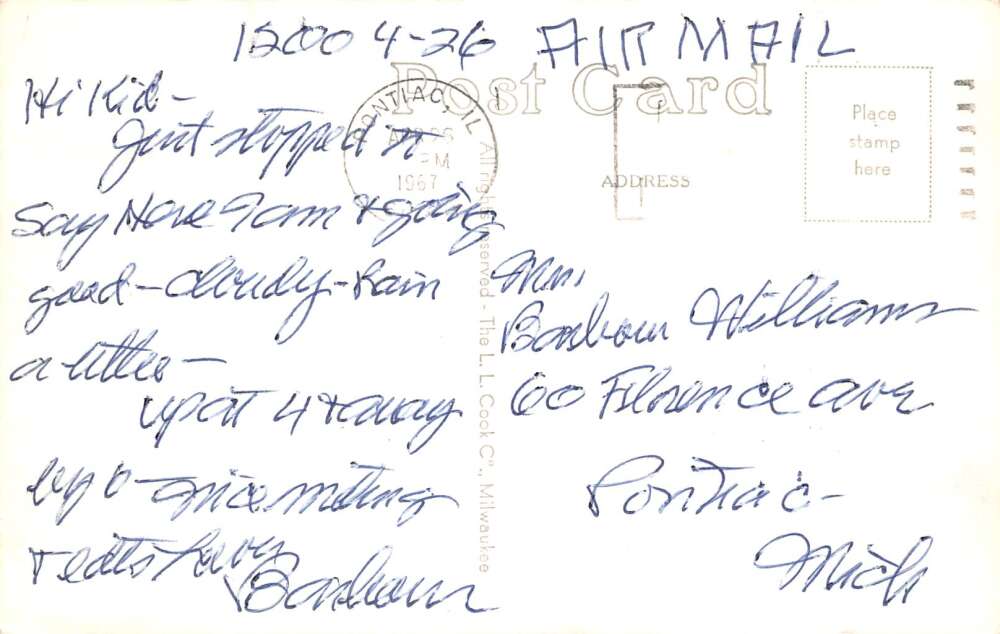 1200 4-26 AIR MAIL
Post Card
Hi Kid-
Just stopped to
say Here I am & going
good-cloudy-Rain
a little-
up at 4 & away
by 6- nice
Barbour
PONTIAC, IL
APR 26
PM
1967
Place
stamp
here
ADDRESS
All rights reserved - The L. L. Cook Co., Milwaukee
Mrs.
Barbour Williams
60 Florence ave
Pontiac-
Mich